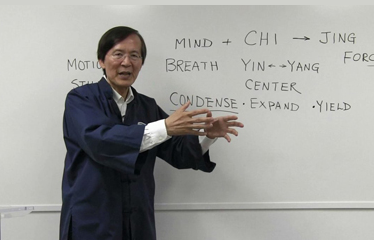 MIND + CHI → JING
FORC
MOTIO BREATH YIN ↔ YANG
CENTER
CONDENSE · EXPAND · YIELD